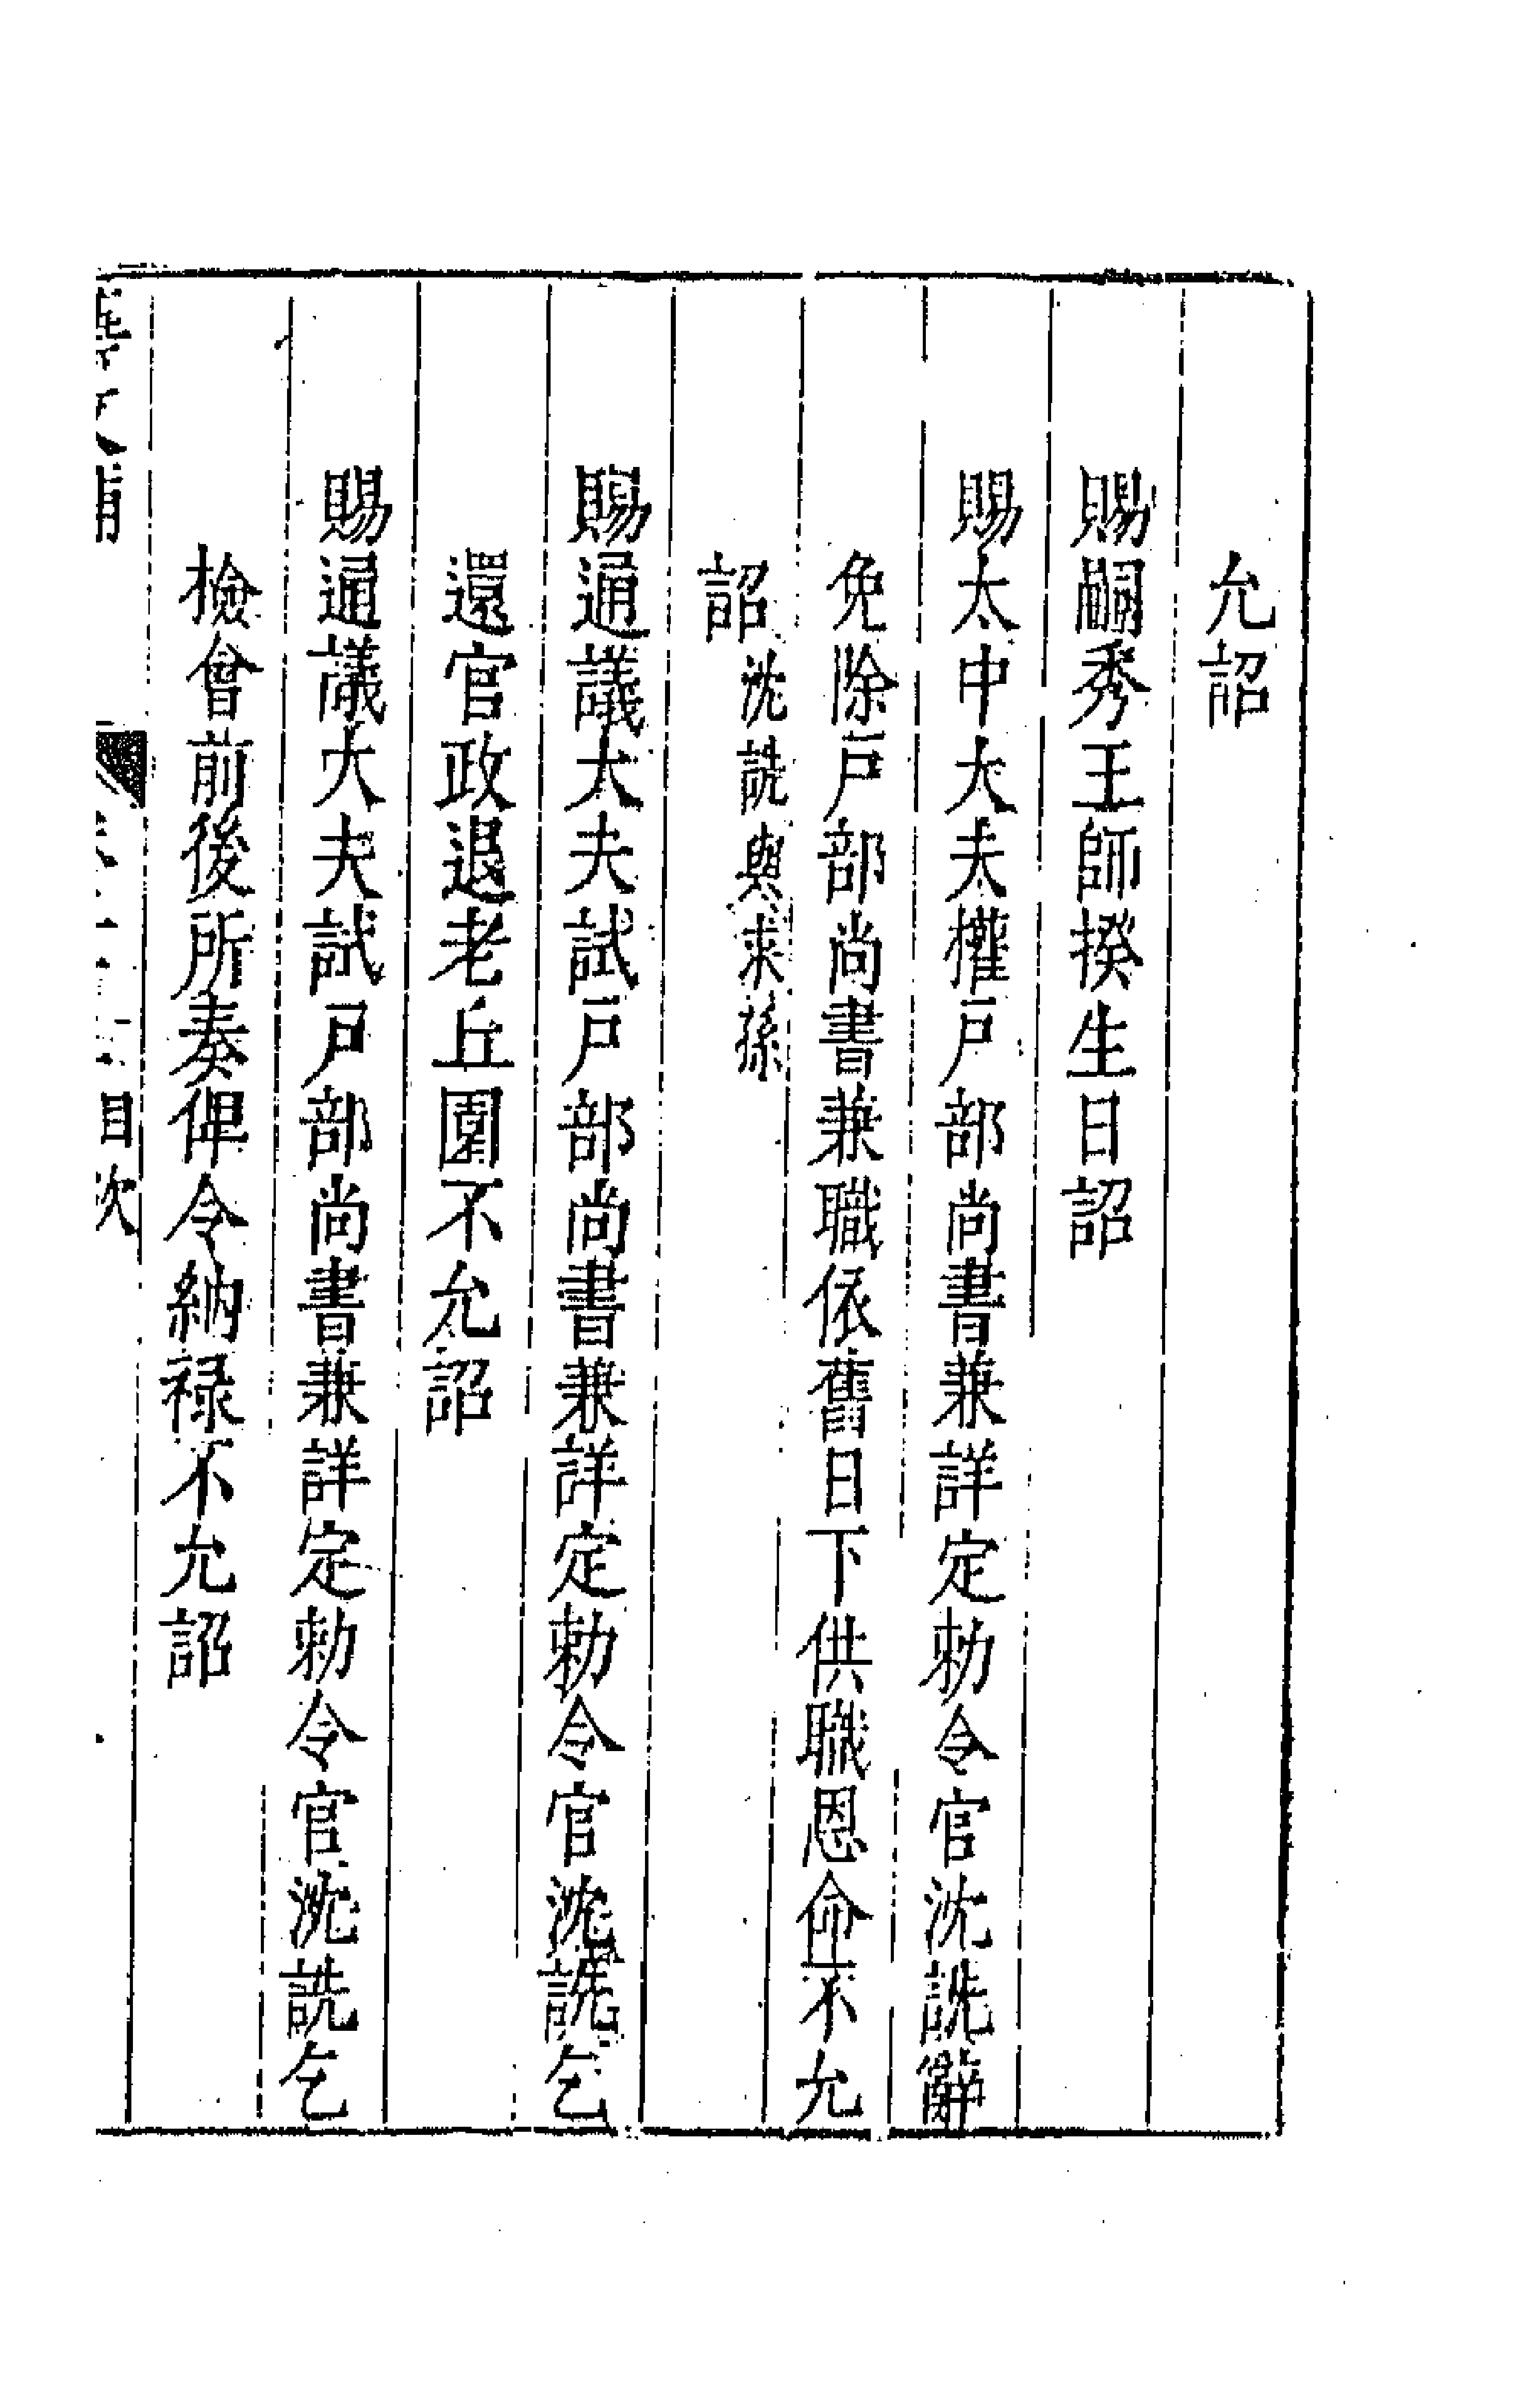 允詔
賜嗣秀王師揆生日詔
賜太中大夫權戸部尚書兼詳定勅令官沈詵辭
免除戸部尚書兼職依舊日下供職恩命不允
詔沈詵與求孫
賜通議大夫試戸部尚書兼詳定勅令官沈詵乞
還官政退老丘園不允詔
賜通議大夫試戸部尚書兼詳定勅令官沈詵乞
檢會前後所奏俾令納禄不允詔
目次